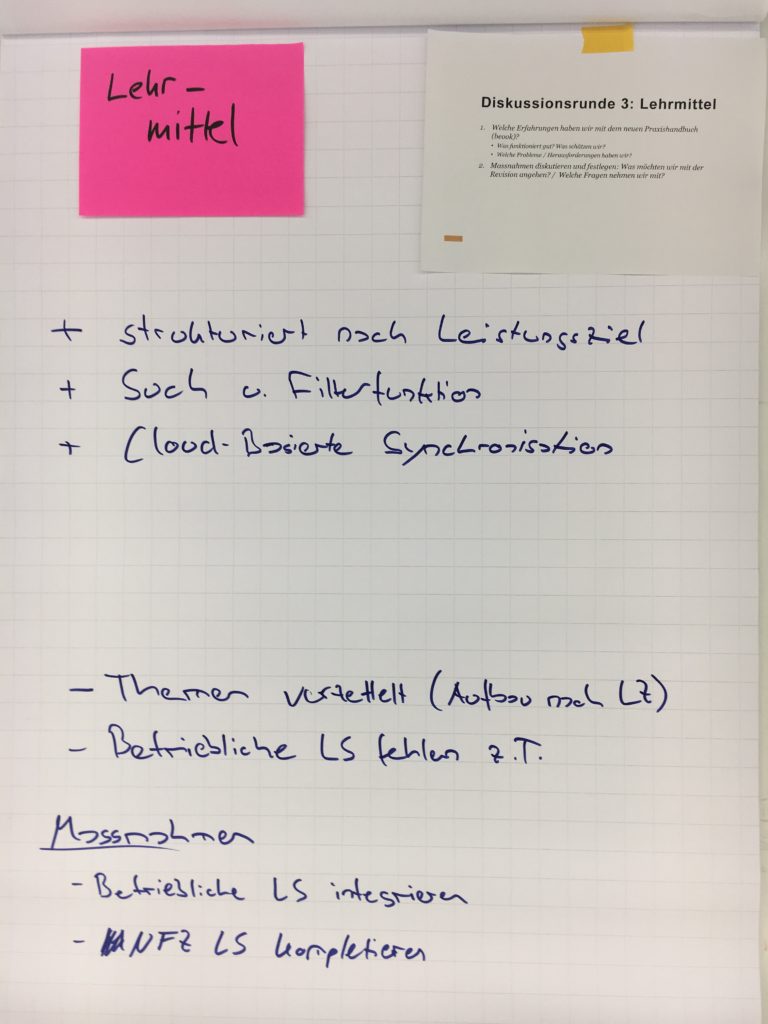 Lehr-
mittel
Diskussionsrunde 3: Lehrmittel
1. Welche Erfahrungen haben wir mit dem neuen Praxishandbuch
(beook)?
• Was funktioniert gut? Was schätzen wir?
• Welche Probleme / Herausforderungen haben wir?
2. Massnahmen diskutieren und festlegen: Was möchten wir mit der
Revision angehen? / Welche Fragen nehmen wir mit?
+ strukturiert nach Leistungsziel
+ Such u. Filterfunktion
+ Cloud-Basierte Synchronisation
- Themen verzettelt (Aufbau nach LZ)
- Betriebliche LS fehlen z.T.
Massnahmen
- Betriebliche LS integrieren
- NFZ LS kompletieren